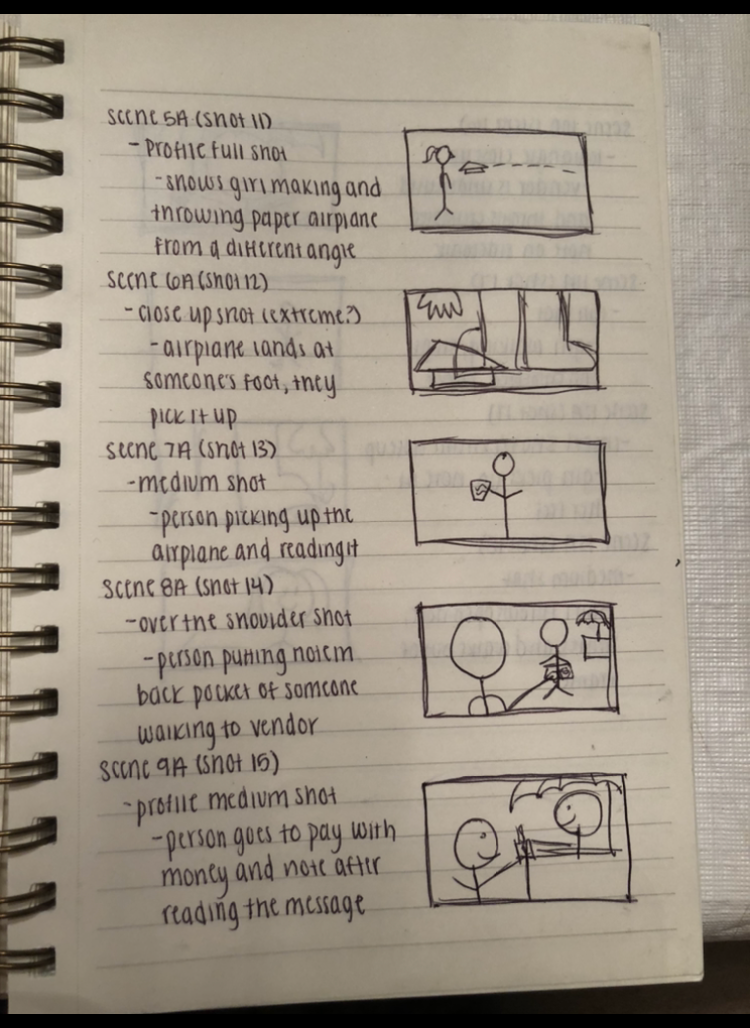 scene 5A (shot 11)
- Profile full shot
- shows girl making and
throwing paper airplane
from a different angle
scene 6A (shot 12)
- close up shot (extreme?)
- airplane lands at
someone's foot, they
pick it up
scene 7A (shot 13)
- medium shot
- person picking up the
airplane and reading it
scene 8A (shot 14)
- over the shoulder shot
- person putting note in
back pocket of someone
walking to vendor
scene 9A (shot 15)
- profile medium shot
- person goes to pay with
money and note after
reading the message